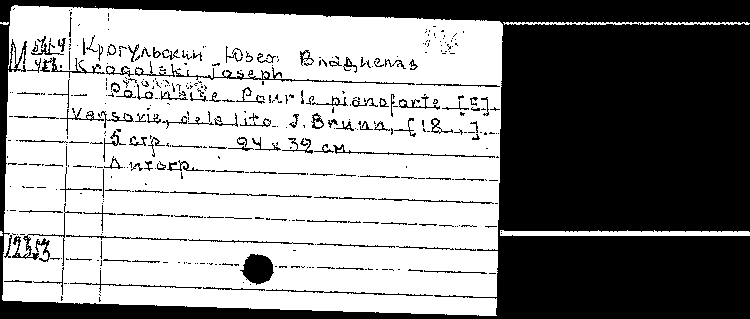 Крогульский Юзеф Владислав
M
Krogolski, Joseph
Polonaise Pour le pianoforte. [E].
Varsovie, de la lito J. Brunn, [18..].
5 стр. 24 x 32 см.
Литогр.
12353